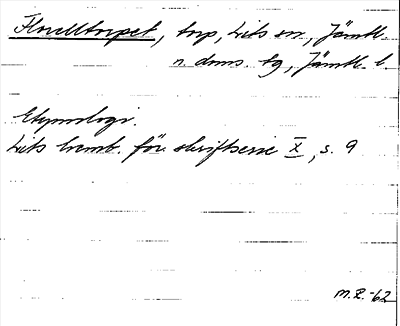 Floreltorpet, torp, Lits sn, Jämtl.
n. doms. tg, Jämtl. l.
Etymologi.
Lits hemb. för. skriftserie X, s. 9
M.E.-62